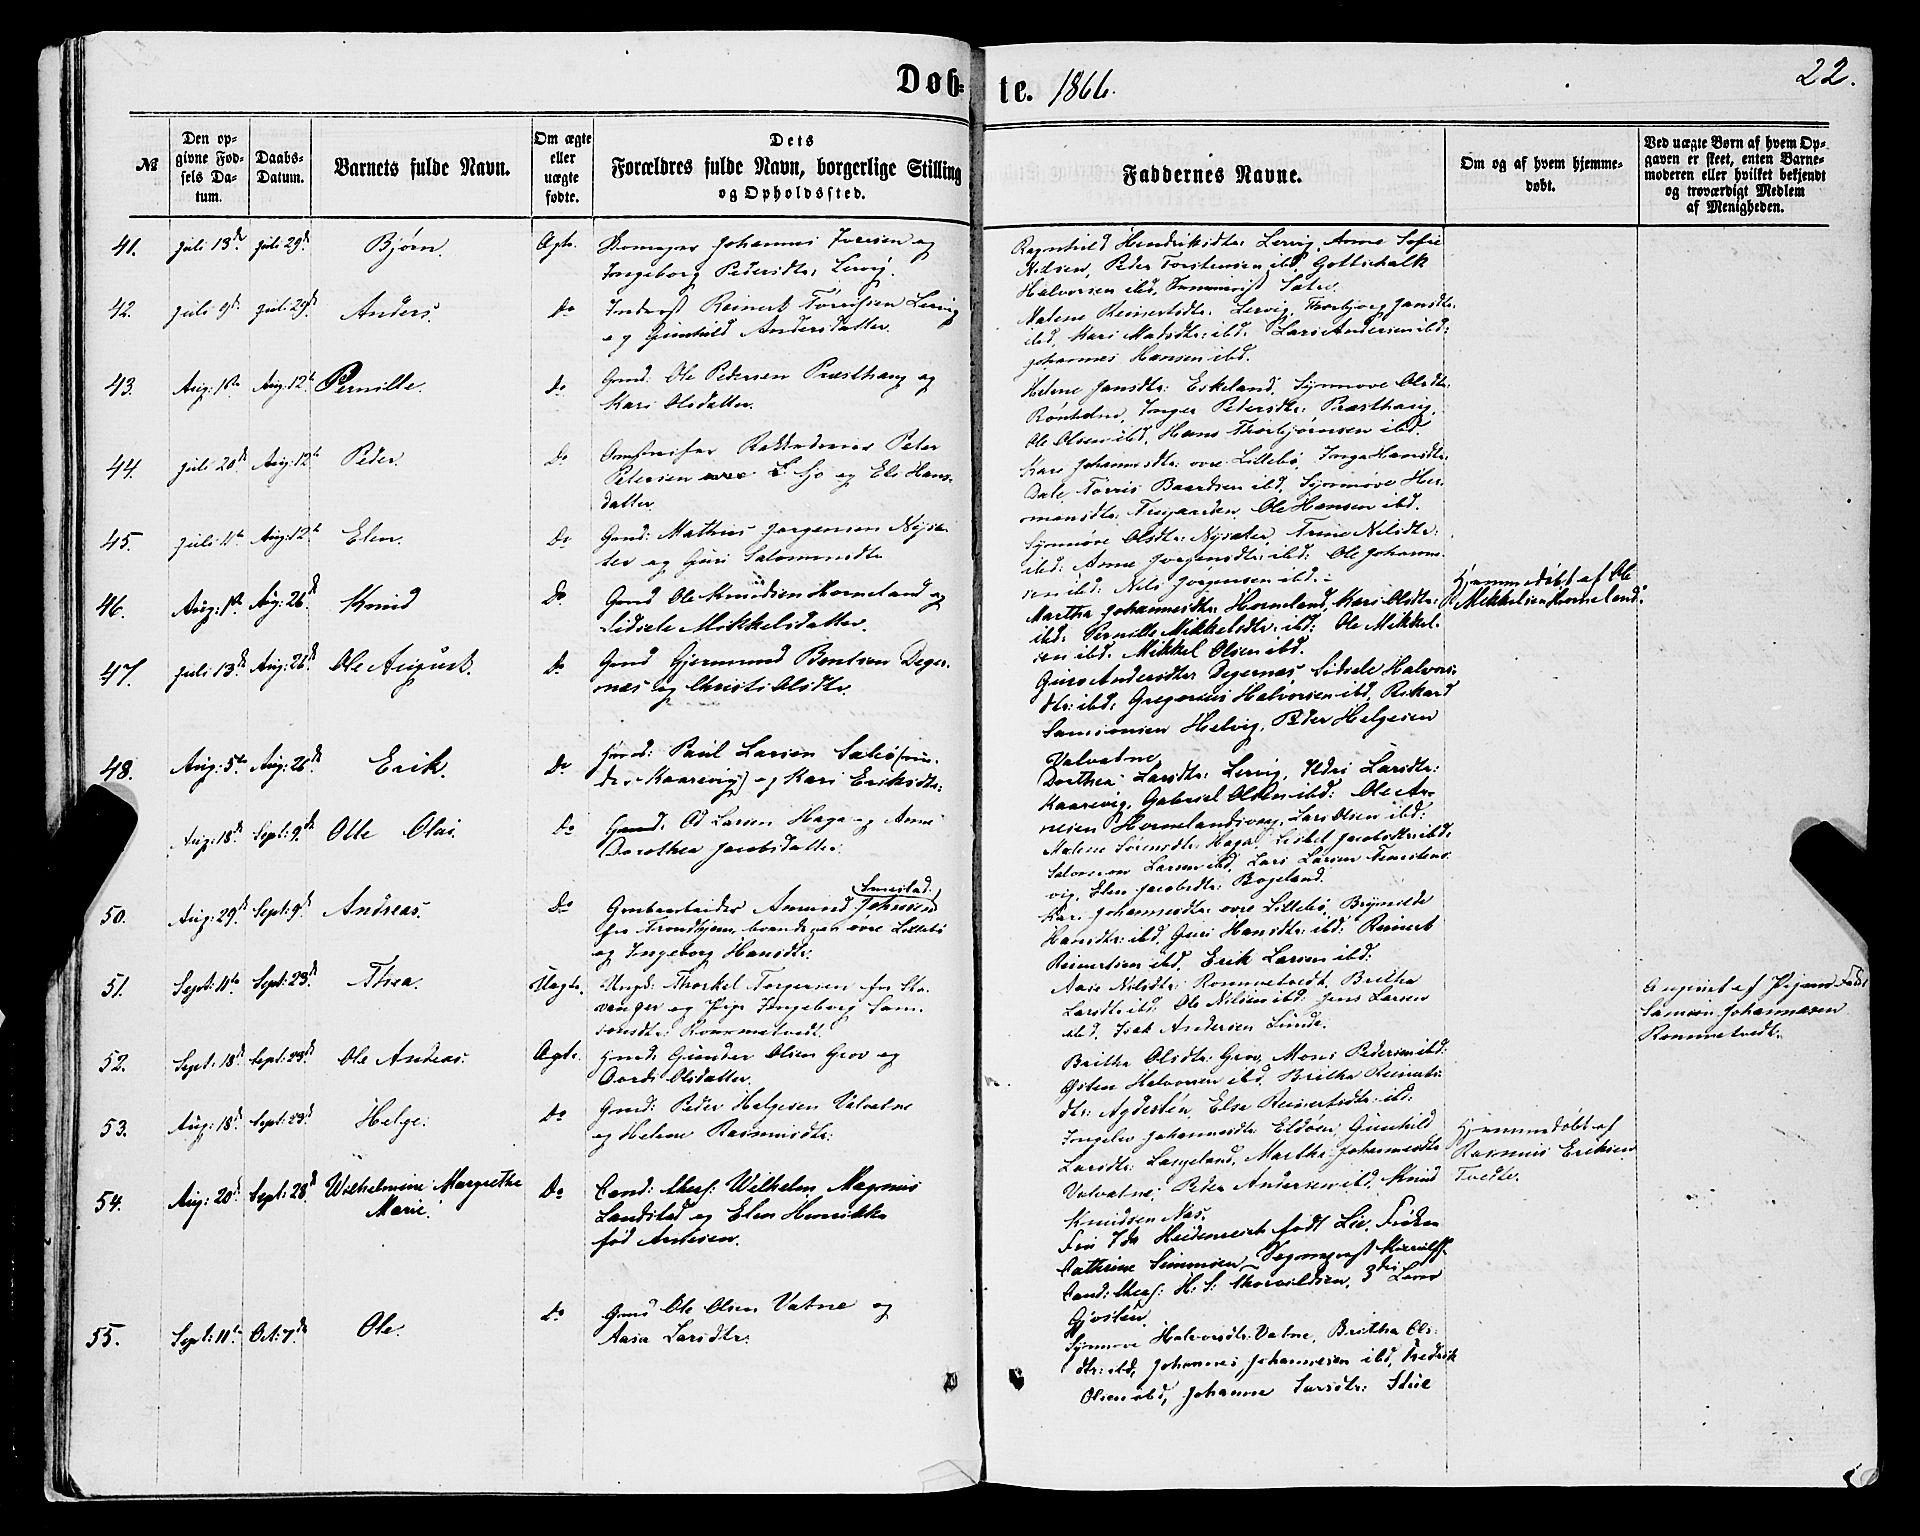 Døb-te. 1866.
22.
№
Den opgivne Fødsels Datum.
Daabs-Datum.
Barnets fulde Navn.
Om ægte eller uægte fødte.
Dets Forældres fulde Navn, borgerlige Stilling og Opholdssted.
Faddernes Navne.
Om og af hvem hjemmedøbt.
Ved uægte Børn af hvem Opgaven er skeet, enten Barnemoderen eller hvilket bekjendt og troværdigt Medlem af Menigheden.
41. Juli 13de Juli 29de Bjørn. Ægte. Skomager Johannes Iversen og
Ingeborg Pedersdtr: Lervig.
Ragnhild Hendriksdtr: Lervig, Anne Sofie
Nilsen, Peder Torstensen ibd, Gottschalk
Halvorsen ibd,
42. Juli 9de Juli 29de Anders. Do Reinert Tørrissen Lervig
og Gunhild Andersdatter.
Malene Reinertsdtr: Lervig, Thorbjorg Jansdtr:
ibd, Kari Matsdtr: ibd. Lars Andersen ibd:
Johannes Hansen ibd.
43. Aug: 1ste Aug: 12te Pernille. Do Gmd: Ole Pedersen Præsthaug og
Kari Olsdatter.
Helene Jansdtr: Eskeland, Synnøve Olsdtr:
Inger Petersdtr: Præsthaug,
Ole Olsen ibd, Hans Thorbjørnsen ibd.
44. Juli 20de Aug: 12te Peder. Do Peter
Petersen og Eli Hans-
datter.
Kari Johannesdtr: øvre Lillebø, Inga Hansdtr:
Dale Tørris Baardsen ibd, Synnøve Her-
mansdtr: Ole Hansen ibd.
45. Juli 11te Aug: 12te Elen. Do Gmd: Mathias Jørgensen Nysæ-
ter og Guri Salamonsdtr
Synnøve Olsdtr: Nysæter, Trine Nilsdtr:
ibd: Anne Jørgensdtr: ibd: Ole Johanne-
sen ibd: Nils Jørgensen ibd:
46. Aug: 1ste Aug: 26de Knud Do Gmd Ole Knudsen Horneland og
Sidsele Mikkelsdatter.
Martha Johannesdtr: Horneland, Kari Olsdtr:
ibd: Pernille Mikkelsdtr: ibd: Ole Mikkel-
sen ibd. Mikkel Olsen ibd.
Hjemmedøbt af Ole
Mikkelsen Horneland.
47. Juli 13de Aug: 26de Ole August. Do Gmd Gjermund Bentsen Deger-
næs og Christi Olsdtr.
Guro Andersdtr Degernæs, Sidsele Halvors-
dtr: ibd: Gregorius Halvorsen ibd, Rikard
Samsonsen Hielvig, Peder Helgesen
Valvatne
48. Aug: 5te Aug: 26de Erik. Do Gmd: Paul Larsen
Kaarevig) og Kari Eriksdtr:
Dorthea Larsdtr: Lervig, Larsdtr:
Kaarevig, Gabriel Olsen ibd: Ole Ar-
nesen Hornelandsvaag, Lars Olsen ibd:
Aug: 18de Sept: 9de Otte Olai Do Gmd: Od Larsen Haga og Anne
Dorothea Jacobsdatter.
Malene Sørensdtr: Haga, Lisbet Jacobsdtr: ibd.
Salomon Larsen ibd, Lars Larsen
vig, Elen Jacobsdtr: Bogeland.
50. Aug: 29de Sept: 9de Andreas. Do Grubearbeider Amund Johnsen
fra Trondhjem, øvre Lillebø
og Ingeborg Hansdtr:
Kari Johannesdtr: øvre Lillebø, Brynilde
Hansdtr: ibd, Guri Hansdtr: ibd: Reinert
Reinertsen ibd, Erik Larsen ibd:
51. Sept: 11te Sept: 23de Thea. Uægte. Ungk: Thorkel Torgersen fra Sta-
vanger og Pige Ingeborg Sam-
sonsdtr: Rommetvedt
Aase Nilsdtr: Rommetvedt, Britha
Larsdtr ibd Ole Nilsen ibd: Jens Larsen
ibd, Isak Andersen Sunde.
Angivet af Pigens Fader
Samson Johannesen
Rommetvedt.
52. Sept: 18de Sept: 23de Ole Andreas. Ægte. Gmd: Gunder Olsen Grov og
Olsdatter.
Britha Olsdtr: Grov, Mons Pedersen ibd:
Østen Halvorsen ibd, Britha Reinerts-
dtr: Agdestén, Else Reinertsdtr: ibd:
53. Aug: 18de Sept: 23de Helge: Do Gmd: Peder Helgesen Valvatne
og Helene Rasmusdtr:
Ingelev Johannesdtr: Eldøen, Gunhild
Larsdtr: Langeland, Martha Johannesdtr
Valvatne, Peder Andersen ibd, Knud
Knudsen Næs.
Hjemmedøbt af
Rasmus Eriksen
Tvedte.
54. Aug: 20de Sept: 28de Wilhelmine Margrethe
Marie. Do Cand: theol: Wilhelm Magnus
Landstad og Elen Henrikke
fød Arntsen.
Fru Ida Heidenreich født Lie, Frøken
Cathrine Simonsen,
Cand: theol: H. S. Thorvaldsen,
55. Sept: 11te Oct: 7de Ole. Do Gmd Ole Olsen Vatne og
Aasa Larsdtr.
Synnøve Halvorsdtr: Vatne, Britha Ols-
dtr: ibd, Johannes Johannesen ibd, Fredrik
Olsen ibd, Johanne Larsdtr: